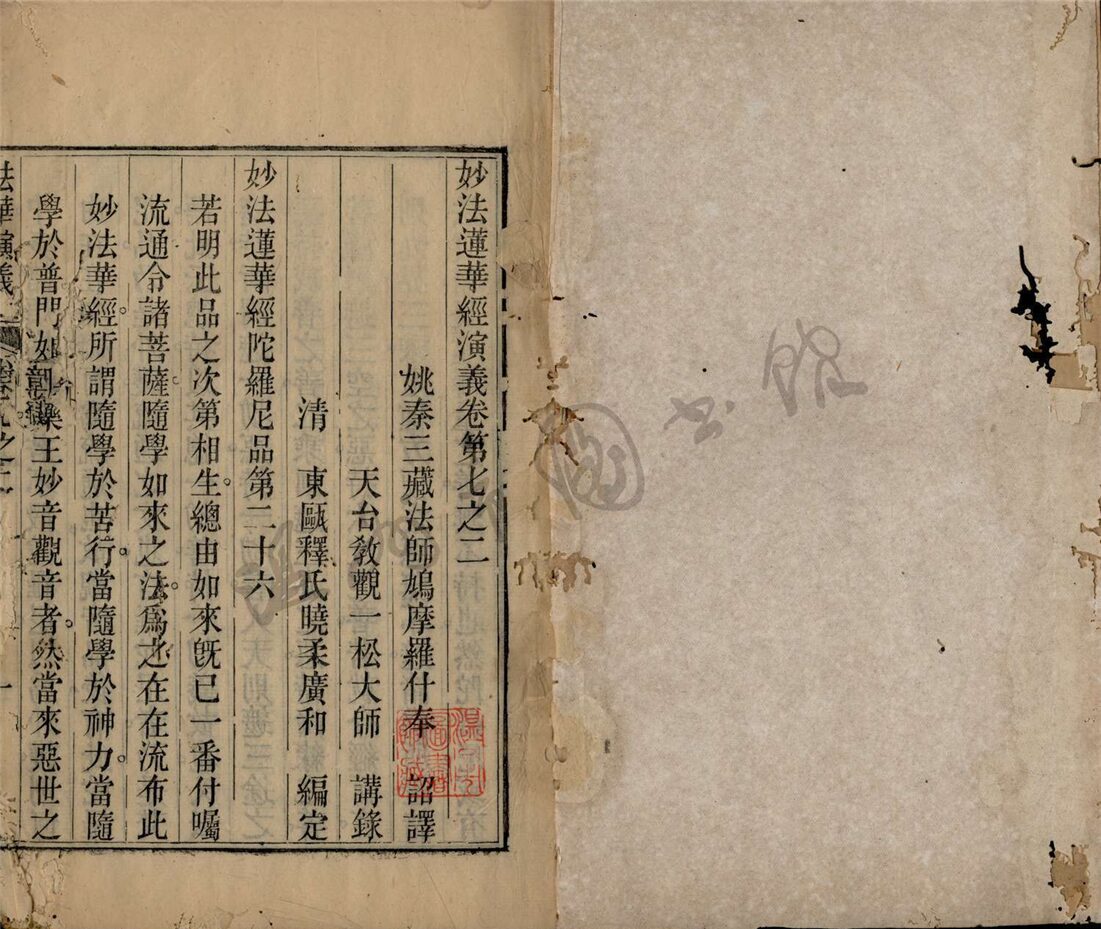 妙法蓮華經演義卷第七之二
姚秦三藏法師鳩摩羅什奉 詔譯
天台教觀一松大師 講錄
清 東甌釋氏曉柔廣和 編定
妙法蓮華經陀羅尼品第二十六
若明此品之次第相生總由如來旣已一番付囑
流通令諸菩薩隨學如來之法爲之在在流布此
妙法華經所謂隨學於苦行當隨學於神力當隨
學於普門如藥王妙音觀音者然當來惡世之
法華演義